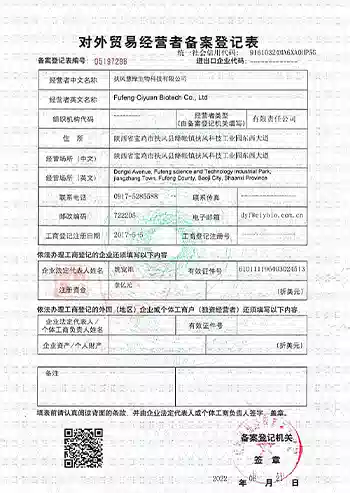 对外贸易经营者备案登记表
统一社会信用代码：
备案登记表编号：05197286
进出口企业代码：
经营者中文名称 扶风慧缘生物科技有限公司
经营者英文名称 Fufeng Ciyuan Biotech Co., Ltd
组织机构代码
经营者类型
（由备案登记机关填写） 有限责任公司
住 所 陕西省宝鸡市扶风县绛帐镇扶风科技工业园东西大道
经营场所（中文） 陕西省宝鸡市扶风县绛帐镇扶风科技工业园东西大道
经营场所（英文） Dongxi Avenue, Fufeng science and Technology Industrial Park,
Jiangzhang Town, Fufeng County, Baoji City, Shaanxi Province
联系电话 0917-5285588 联系传真
邮政编码 722205 电子邮箱
工商登记注册日期 2017-5-5 工商登记注册号
依法办理工商登记的企业还须填写以下内容
企业法定代表人姓名 有效证件号
注册资金 壹亿元 （折美元）
依法办理工商登记的外国（地区）企业或个体工商户（独资经营者）还须填写以下内容
企业法定代表人/
个体工商负责人姓名 有效证件号
企业资产/个人财产 （折美元）
备注
填表前请认真阅读背面的条款，并由企业法定代表人或个体工商负责人签字、盖章。
备案登记机关
签 章
2022